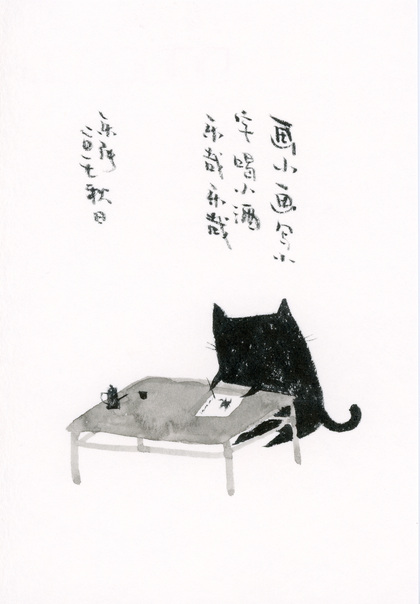 画小画写小
字喝小酒
乐哉乐哉
乐
二〇一七秋日